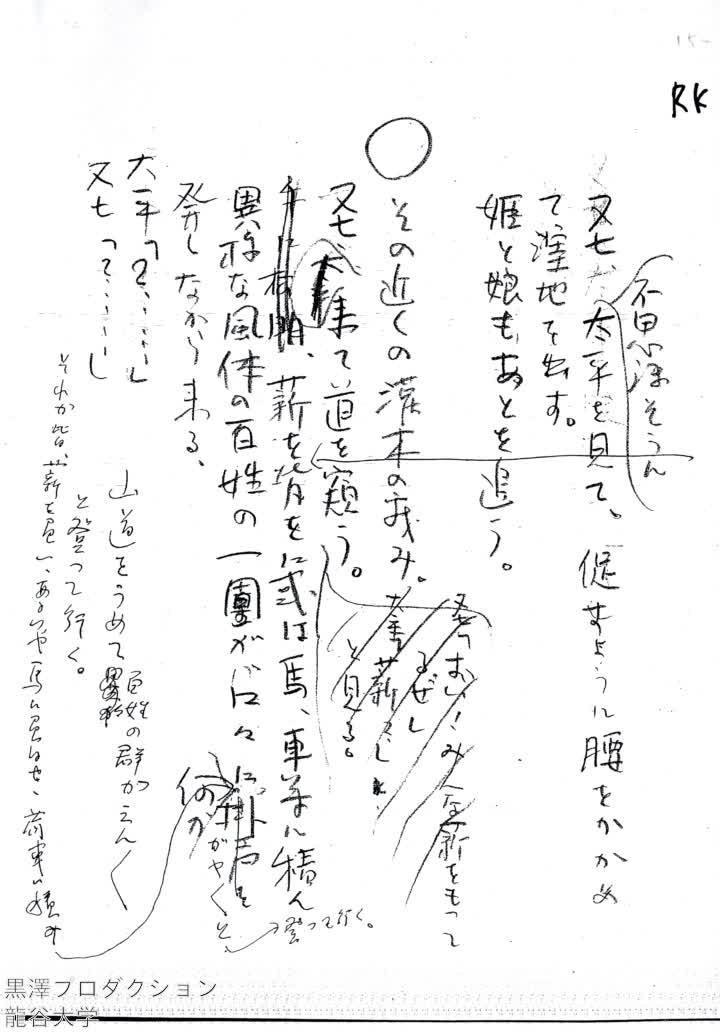 RK
不思議そうん
又七、太平を見て。促すように腰をかがめ
て窪地を出す。
姫と娘もあとを追う。
その近くの灌木の茂み。
又七、太平来て道を窺う。
又七「おい！みんな薪をもって
るぜ」
と見る。
薪を背に或は馬、車等に積ん
異様な風体の百姓の一團が口々に掛声を
何かがやくと
登って行く。
発しながら来る、
太平「？……」
又七「？……」
山道をうめて百姓の群がえん〱
と登って行く。
それが皆、薪を負い、あるいは馬に負はせ、荷車に積み
黒澤プロダクション
龍谷大学